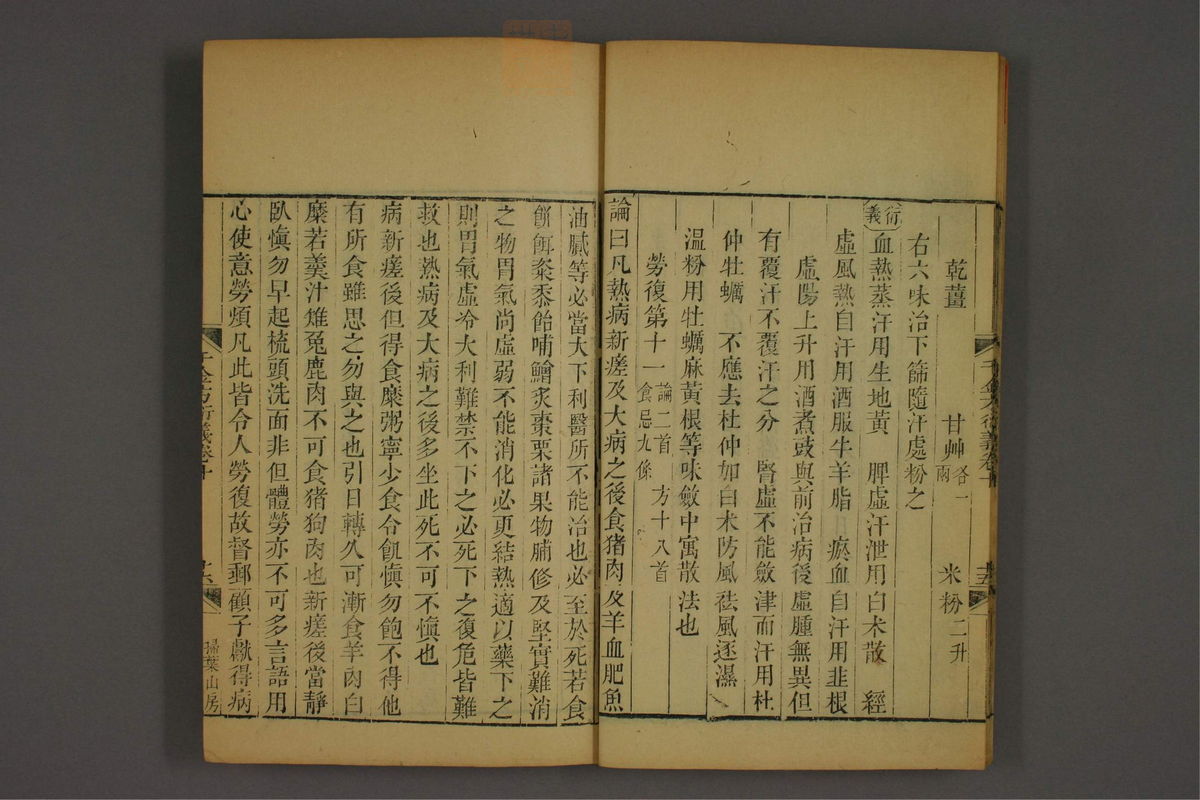 乾薑 甘艸各一兩 米粉二升
右六味治下篩隨汗處粉之
衍義血熱蒸汗用生地黃 脾虛汗泄用白朮散 經
虛風熱自汗用酒服牛羊脂 瘀血自汗用韭根
虛陽上升用酒煮豉與前治病後虛腫無異但
有覆汗不覆汗之分 腎虛不能斂津而汗用杜
仲牡蠣 不應去杜仲加白朮防風祛風逐濕
温粉用牡蠣麻黃根等味斂中寓散法也
勞復第十一 論二首 方十八首 食忌九條
論曰凡熱病新瘥及大病之後食猪肉及羊血肥魚
油膩等必當大下利醫所不能治也必至於死若食
餅餌粢黍飴哺鱠炙棗栗諸果物脯修及堅實難消
之物胃氣尚虛弱不能消化必更結熱適以藥下之
則胃氣虛冷大利難禁不下之必死下之復危皆難
救也熱病及大病之後多坐此死不可不慎也
病新瘥後但得食糜粥寧少食令飢慎勿飽不得他
有所食雖思之勿與之也引日轉久可漸食羊肉白
糜若羹汁雉兔鹿肉不可食猪狗肉也新瘥後當靜
臥慎勿早起梳頭洗面非但體勞亦不可多言語用
心使意勞煩凡此皆令人勞復故督郵顧子獻得病
千金方衍義卷十
十六
掃葉山房